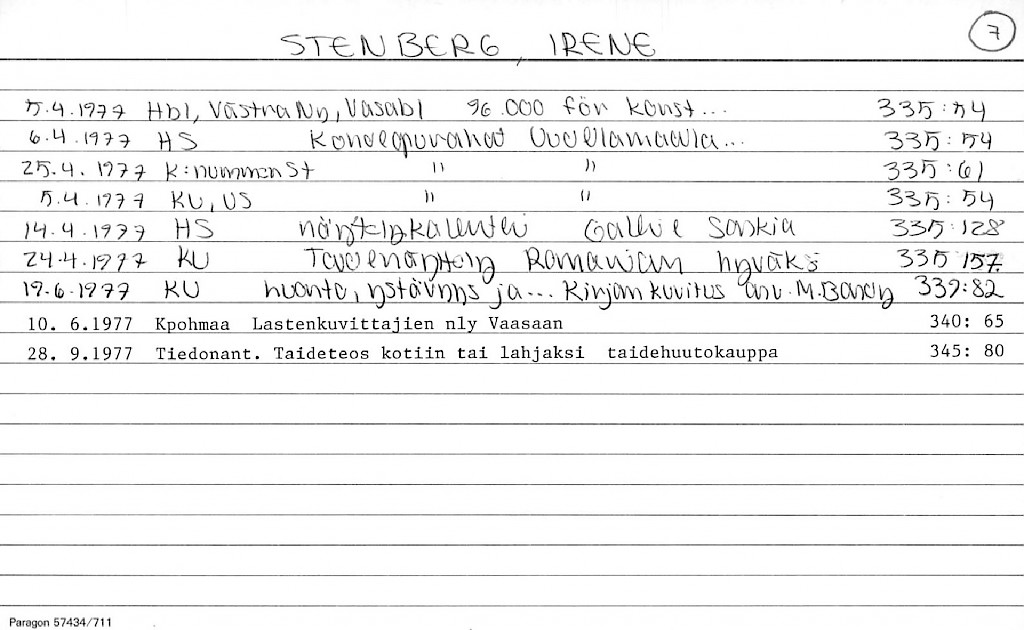 STENBERG, IRENE 7
5.4.1977 Hbl, Västra Ny, Vasabl 96.000 för konst... 335:54
6.4.1977 HS Uudellamaalla... 335:54
25.4.1977 K:nummen St " " 335:61
5.4.1977 KU, US " " 335:54
14.4.1977 HS näyttelykalenteri Gallerie Saskia 335:128
24.4.1977 KU Taidenäyttely Romanian hyväksi 335 157.
19.6.1977 KU luonto, ystävyys ja... Kirjan kuvitus arv. M. 339:82
10. 6.1977 Kpohmaa Lastenkuvittajien nly Vaasaan 340: 65
28. 9.1977 Tiedonant. Taideteos kotiin tai lahjaksi taidehuutokauppa 345: 80
Paragon 57434/711